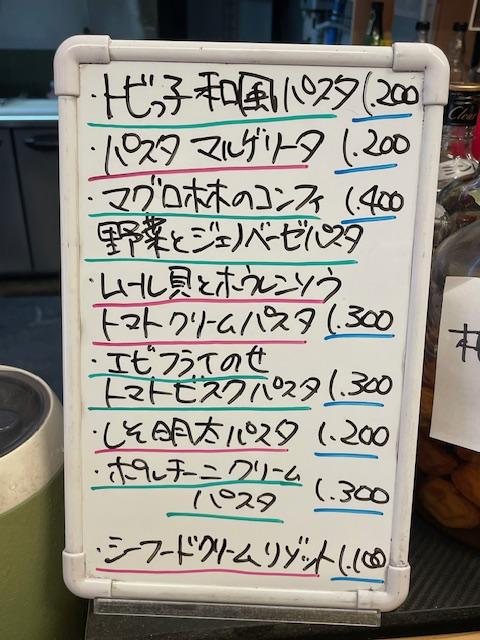 ・トビっ子和風パスタ 1.200
・パスタ マルゲリータ 1.200
・マグロホホのコンフィ 1.400
野菜とジェノベーゼパスタ
・ムール貝とホウレンソウ
トマトクリームパスタ 1.300
・エビフライのせ
トマトビスクパスタ 1.300
・しそ明太パスタ 1.200
・ポルチーニクリーム
パスタ 1.300
・シーフードクリームリゾット 1.100